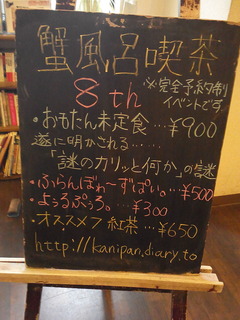 蟹風呂喫茶
8th
※完全予約制
イベントです
・おもたん未定食…¥900
遂に明かされる……
「謎のカリッと何か」の謎
・ふらんぼわ~ずぱい。…¥500
・よっるぷっろ。…¥300
・オススメフ紅茶…¥650
http://kanipan.diary.to